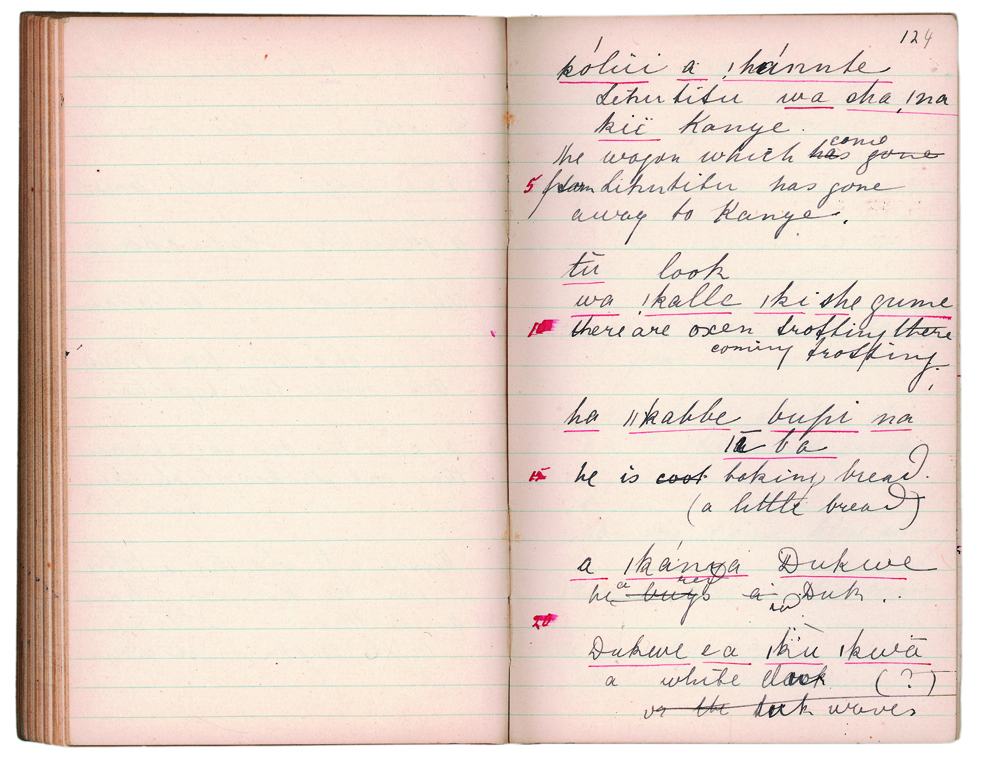 124
kólui a ǀhánnte
Lehututu wa sha ǀna
kiï Kanye.
the wagon which has come gone
5 from Lehututu has gone
away to Kanye.
tu look
wa ǀkalle ǀki she gume
there are oxen trotting there
coming trotting.
ha ǁkabbe bupi na
ba
15 he is cook baking bread.
(a little bread)
a Dukwe
he a buys a Duk.
20
Dukwe ea ǀkwā
a white duk (?)
or the duk waves